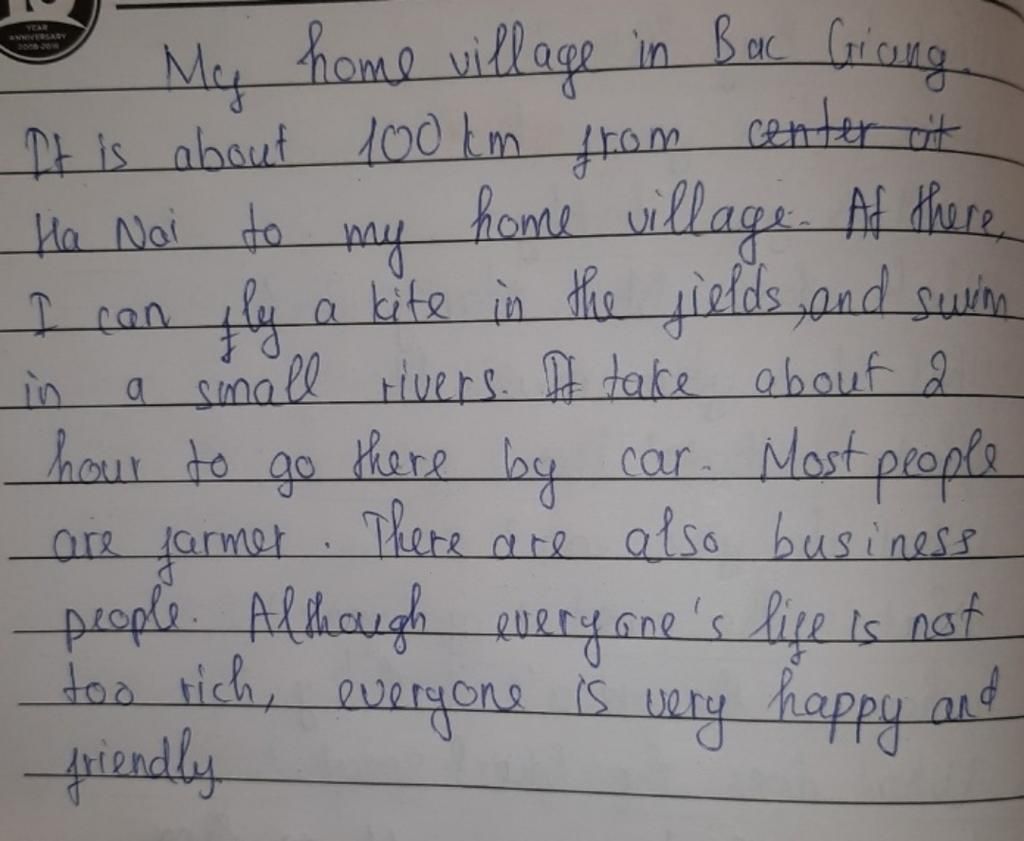 YEAR
ANNIVERSARY
2008-2018
My home village in Bac Giang.
It is about 100 km from ~~center of~~
Ha Noi to my home village. At there,
I can fly a kite in the fields, and swim
in a small rivers. It take about 2
hour to go there by car. Most people
are farmer. There are also business
people. Although everyone's life is not
too rich, everyone is very happy and
friendly.